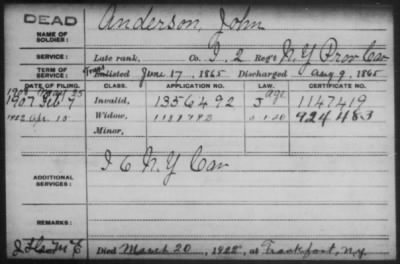 DEAD
NAME OF SOLDIER:
Anderson, John
SERVICE:
Late rank, Co. I, 2 Reg't N.Y. Prov Cav
TERM OF SERVICE:
Trans Enlisted June 17, 1865 Discharged Aug 9, 1865
DATE OF FILING. CLASS. APPLICATION NO. LAW. CERTIFICATE NO.
1907 Feb 7 Invalid, 1356492 Age 1147419
1922 Apr. 10 Widow, 924483
Minor,
ADDITIONAL SERVICES:
I 6 N.Y. Cav
REMARKS:
Died March 20, 1922, at Frankfort, N.Y.